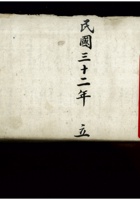 民國三十二年 立